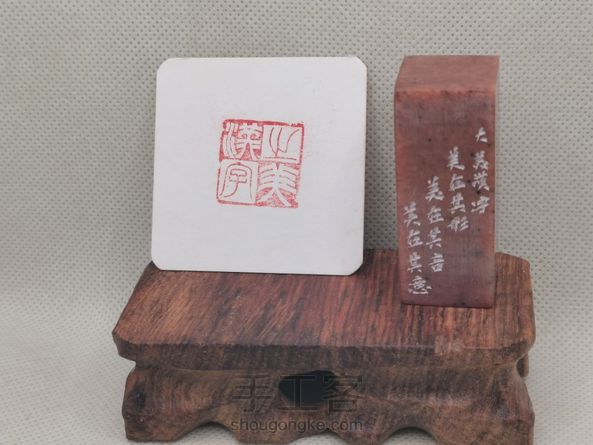 漢字
之美
大美漢字
美在其形
美在其音
美在其意
手工客
shougongke.com